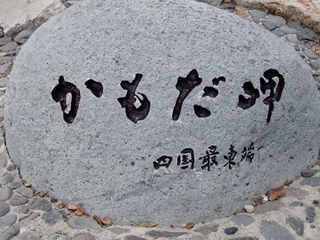 かもだ岬
四国最東端